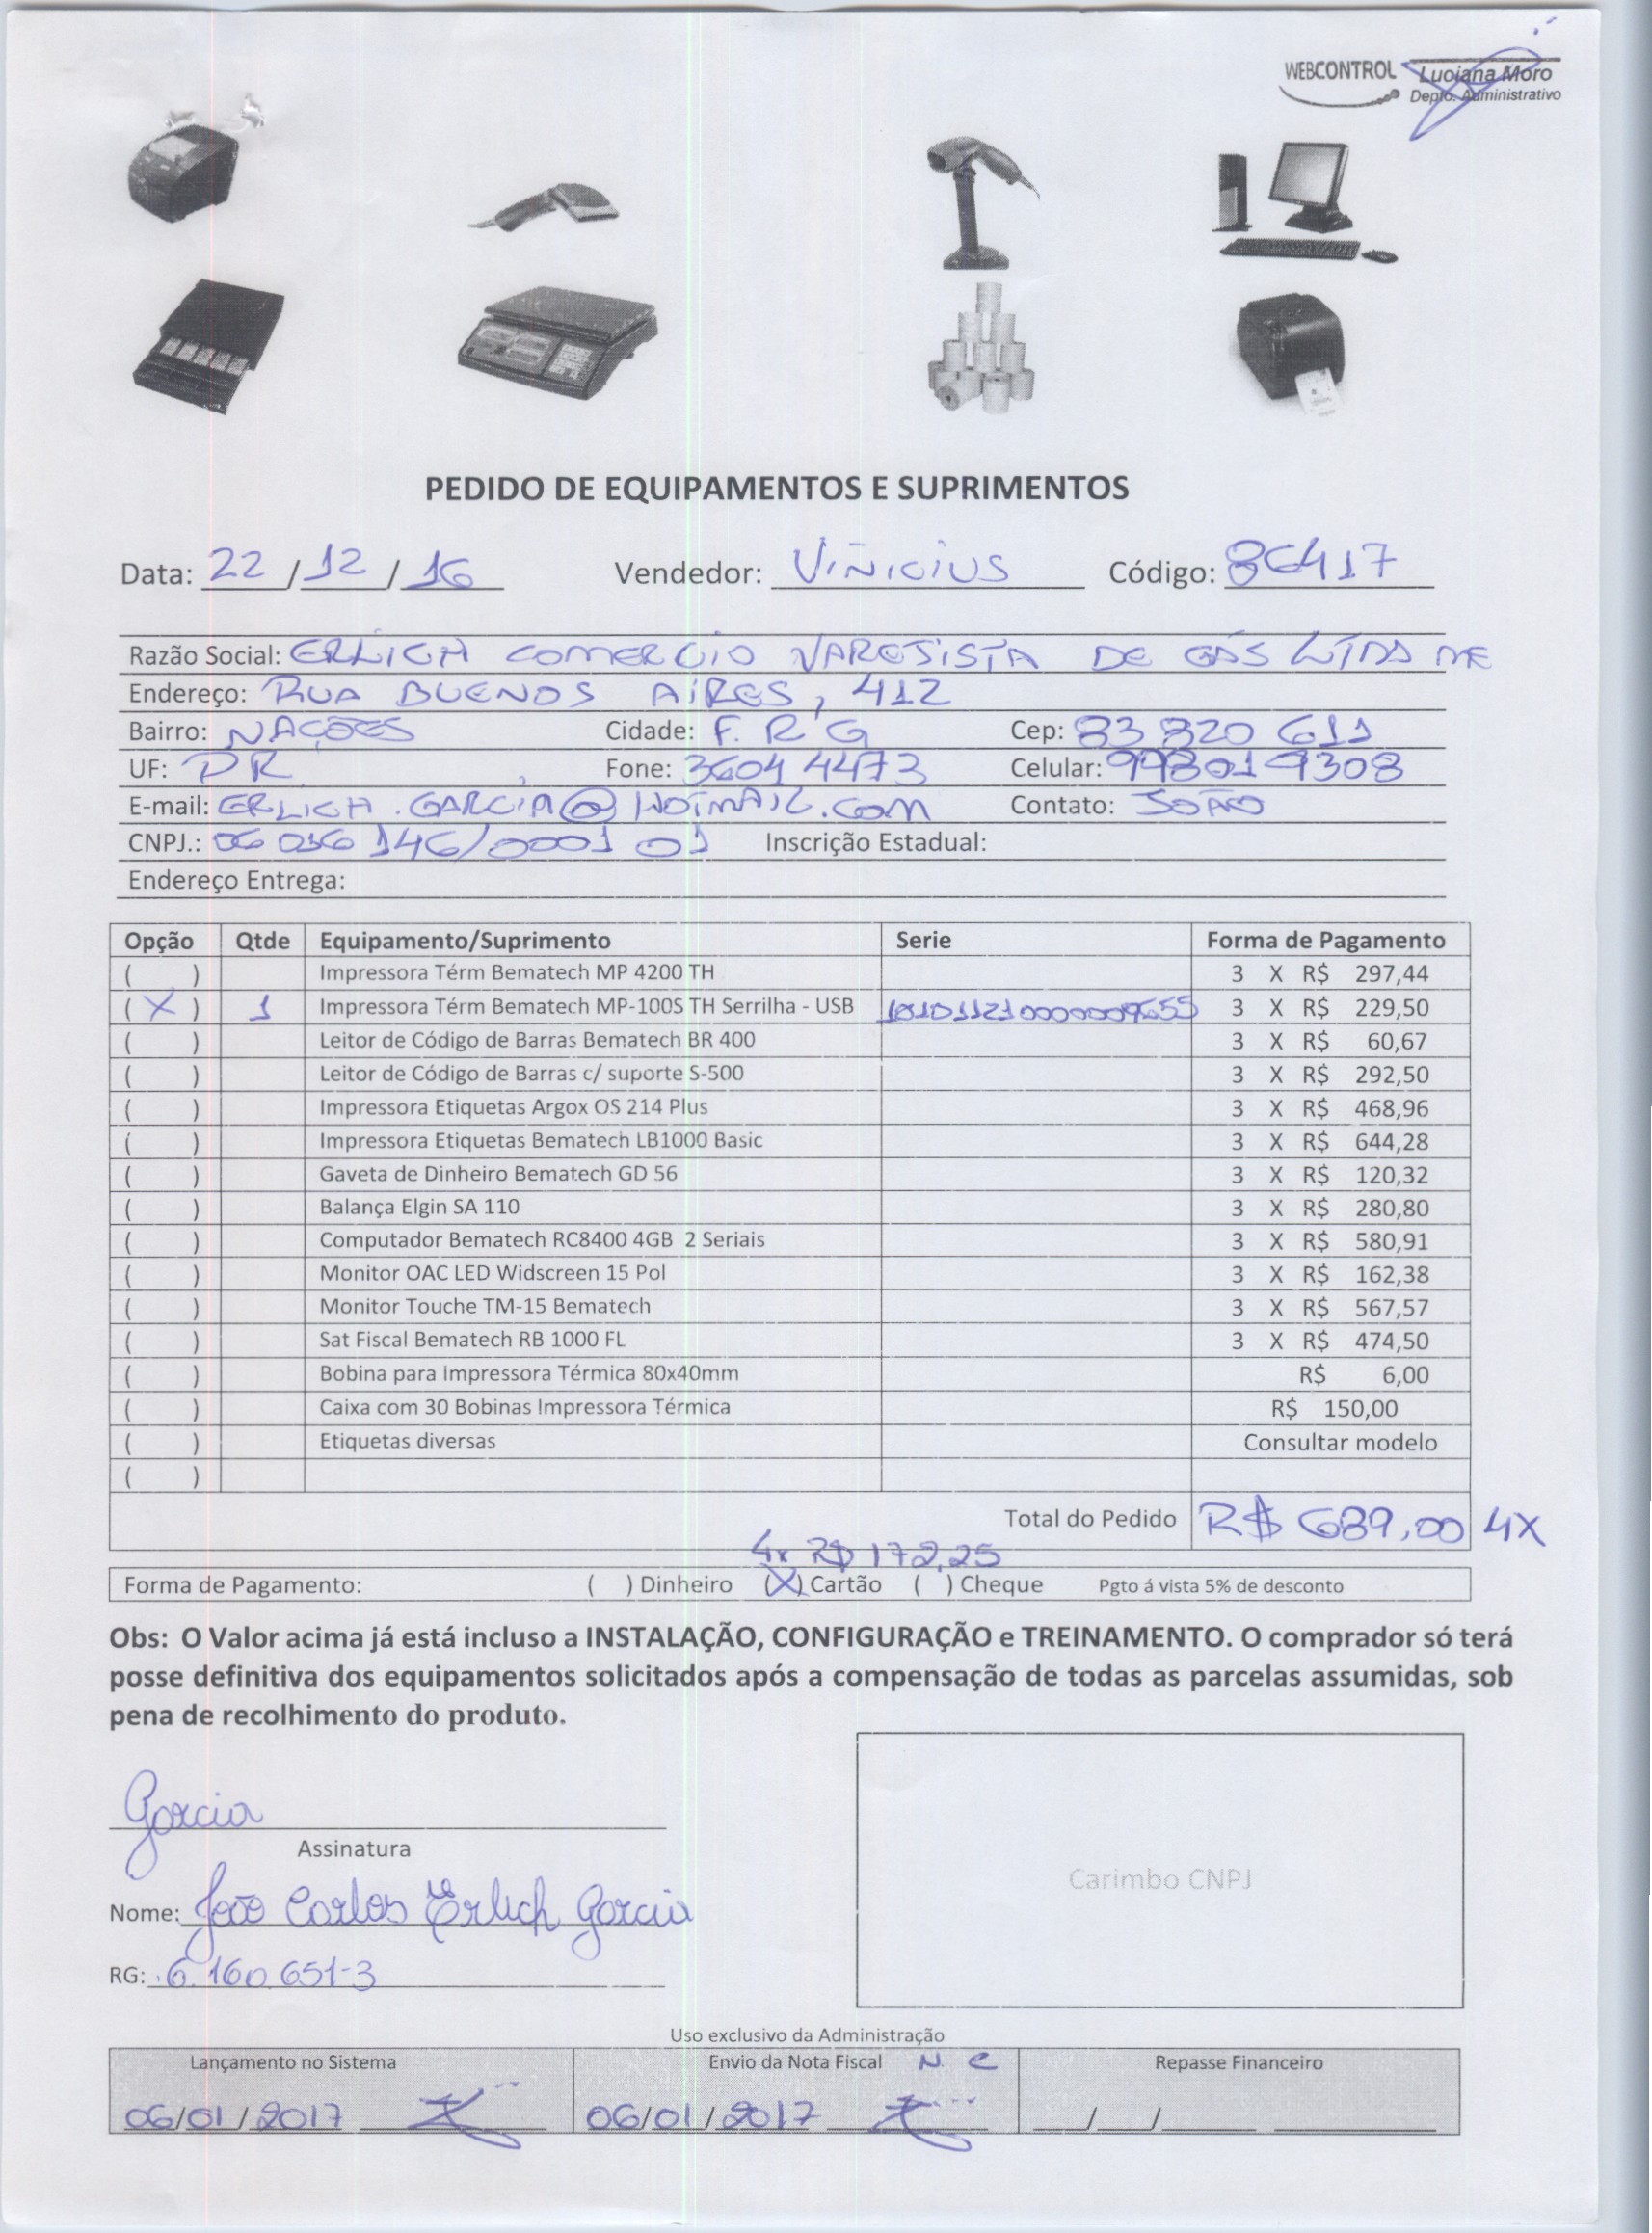 WEBCONTROL Luciana Moro
Depto. Administrativo
PEDIDO DE EQUIPAMENTOS E SUPRIMENTOS
Data: 22 / 12 / 16 Vendedor: VINICIUS Código: 86417
Razão Social: ERLICH COMERCIO VAREJISTA DE GÁS LTDA ME
Endereço: RUA BUENOS AIRES, 412
Bairro: NAÇÕES Cidade: F. R G Cep: 83 820 611
UF: PR Fone: 3604 4473 Celular: 998019308
E-mail: ERLICH.GARCIA@HOTMAIL.COM Contato: JOÃO
CNPJ.: 06 036 146/0001 01 Inscrição Estadual:
Endereço Entrega:
Opção Qtde Equipamento/Suprimento Serie Forma de Pagamento
( ) Impressora Térm Bematech MP 4200 TH 3 X R$ 297,44
( X ) 1 Impressora Térm Bematech MP-100S TH Serrilha - USB 3 X R$ 229,50
( ) Leitor de Código de Barras Bematech BR 400 3 X R$ 60,67
( ) Leitor de Código de Barras c/ suporte S-500 3 X R$ 292,50
( ) Impressora Etiquetas Argox OS 214 Plus 3 X R$ 468,96
( ) Impressora Etiquetas Bematech LB1000 Basic 3 X R$ 644,28
( ) Gaveta de Dinheiro Bematech GD 56 3 X R$ 120,32
( ) Balança Elgin SA 110 3 X R$ 280,80
( ) Computador Bematech RC8400 4GB 2 Seriais 3 X R$ 580,91
( ) Monitor OAC LED Widscreen 15 Pol 3 X R$ 162,38
( ) Monitor Touche TM-15 Bematech 3 X R$ 567,57
( ) Sat Fiscal Bematech RB 1000 FL 3 X R$ 474,50
( ) Bobina para Impressora Térmica 80x40mm R$ 6,00
( ) Caixa com 30 Bobinas Impressora Térmica R$ 150,00
( ) Etiquetas diversas Consultar modelo
( )
Total do Pedido R$ 689,00 4X
4x R$ 172,25
Forma de Pagamento: ( ) Dinheiro (X) Cartão ( ) Cheque Pgto á vista 5% de desconto
Obs: O Valor acima já está incluso a INSTALAÇÃO, CONFIGURAÇÃO e TREINAMENTO. O comprador só terá
posse definitiva dos equipamentos solicitados após a compensação de todas as parcelas assumidas, sob
pena de recolhimento do produto.
Garcia
Assinatura
Carimbo CNPJ
Nome: João Carlos Erlich Garcia
RG: 6.160.651-3
Uso exclusivo da Administração
Lançamento no Sistema Envio da Nota Fiscal N. C Repasse Financeiro
06/01/2017 06/01/2017 / /